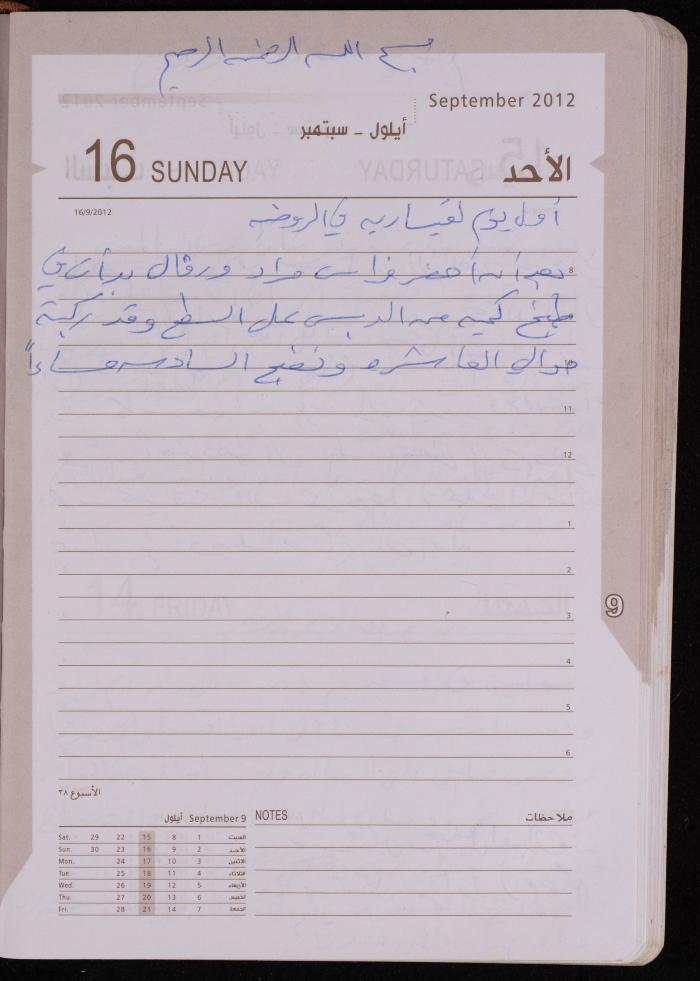 بسم الله الرحمن الرحيم
September 2012
أيلول - سبتمبر
16 SUNDAY
الأحد
16/9/2012
أول يوم لقيساريه في الروضه
بعد أن أحضر فراس مراد و رتال بدأت في
طبخ كميه من الدبس على السطح وقد ركبته
حوالي العاشره ونضج السادسه مساءاً
8
10
11
12
1
2
3
4
5
6
9
الأسبوع ٣٨
September 9 أيلول
Sat. 29 22 15 8 1 السبت
Sun. 30 23 16 9 2 الأحد
Mon. 24 17 10 3 الاثنين
Tue. 25 18 11 4 الثلاثاء
Wed. 26 19 12 5 الأربعاء
Thu. 27 20 13 6 الخميس
Fri. 28 21 14 7 الجمعة
NOTES ملاحظات